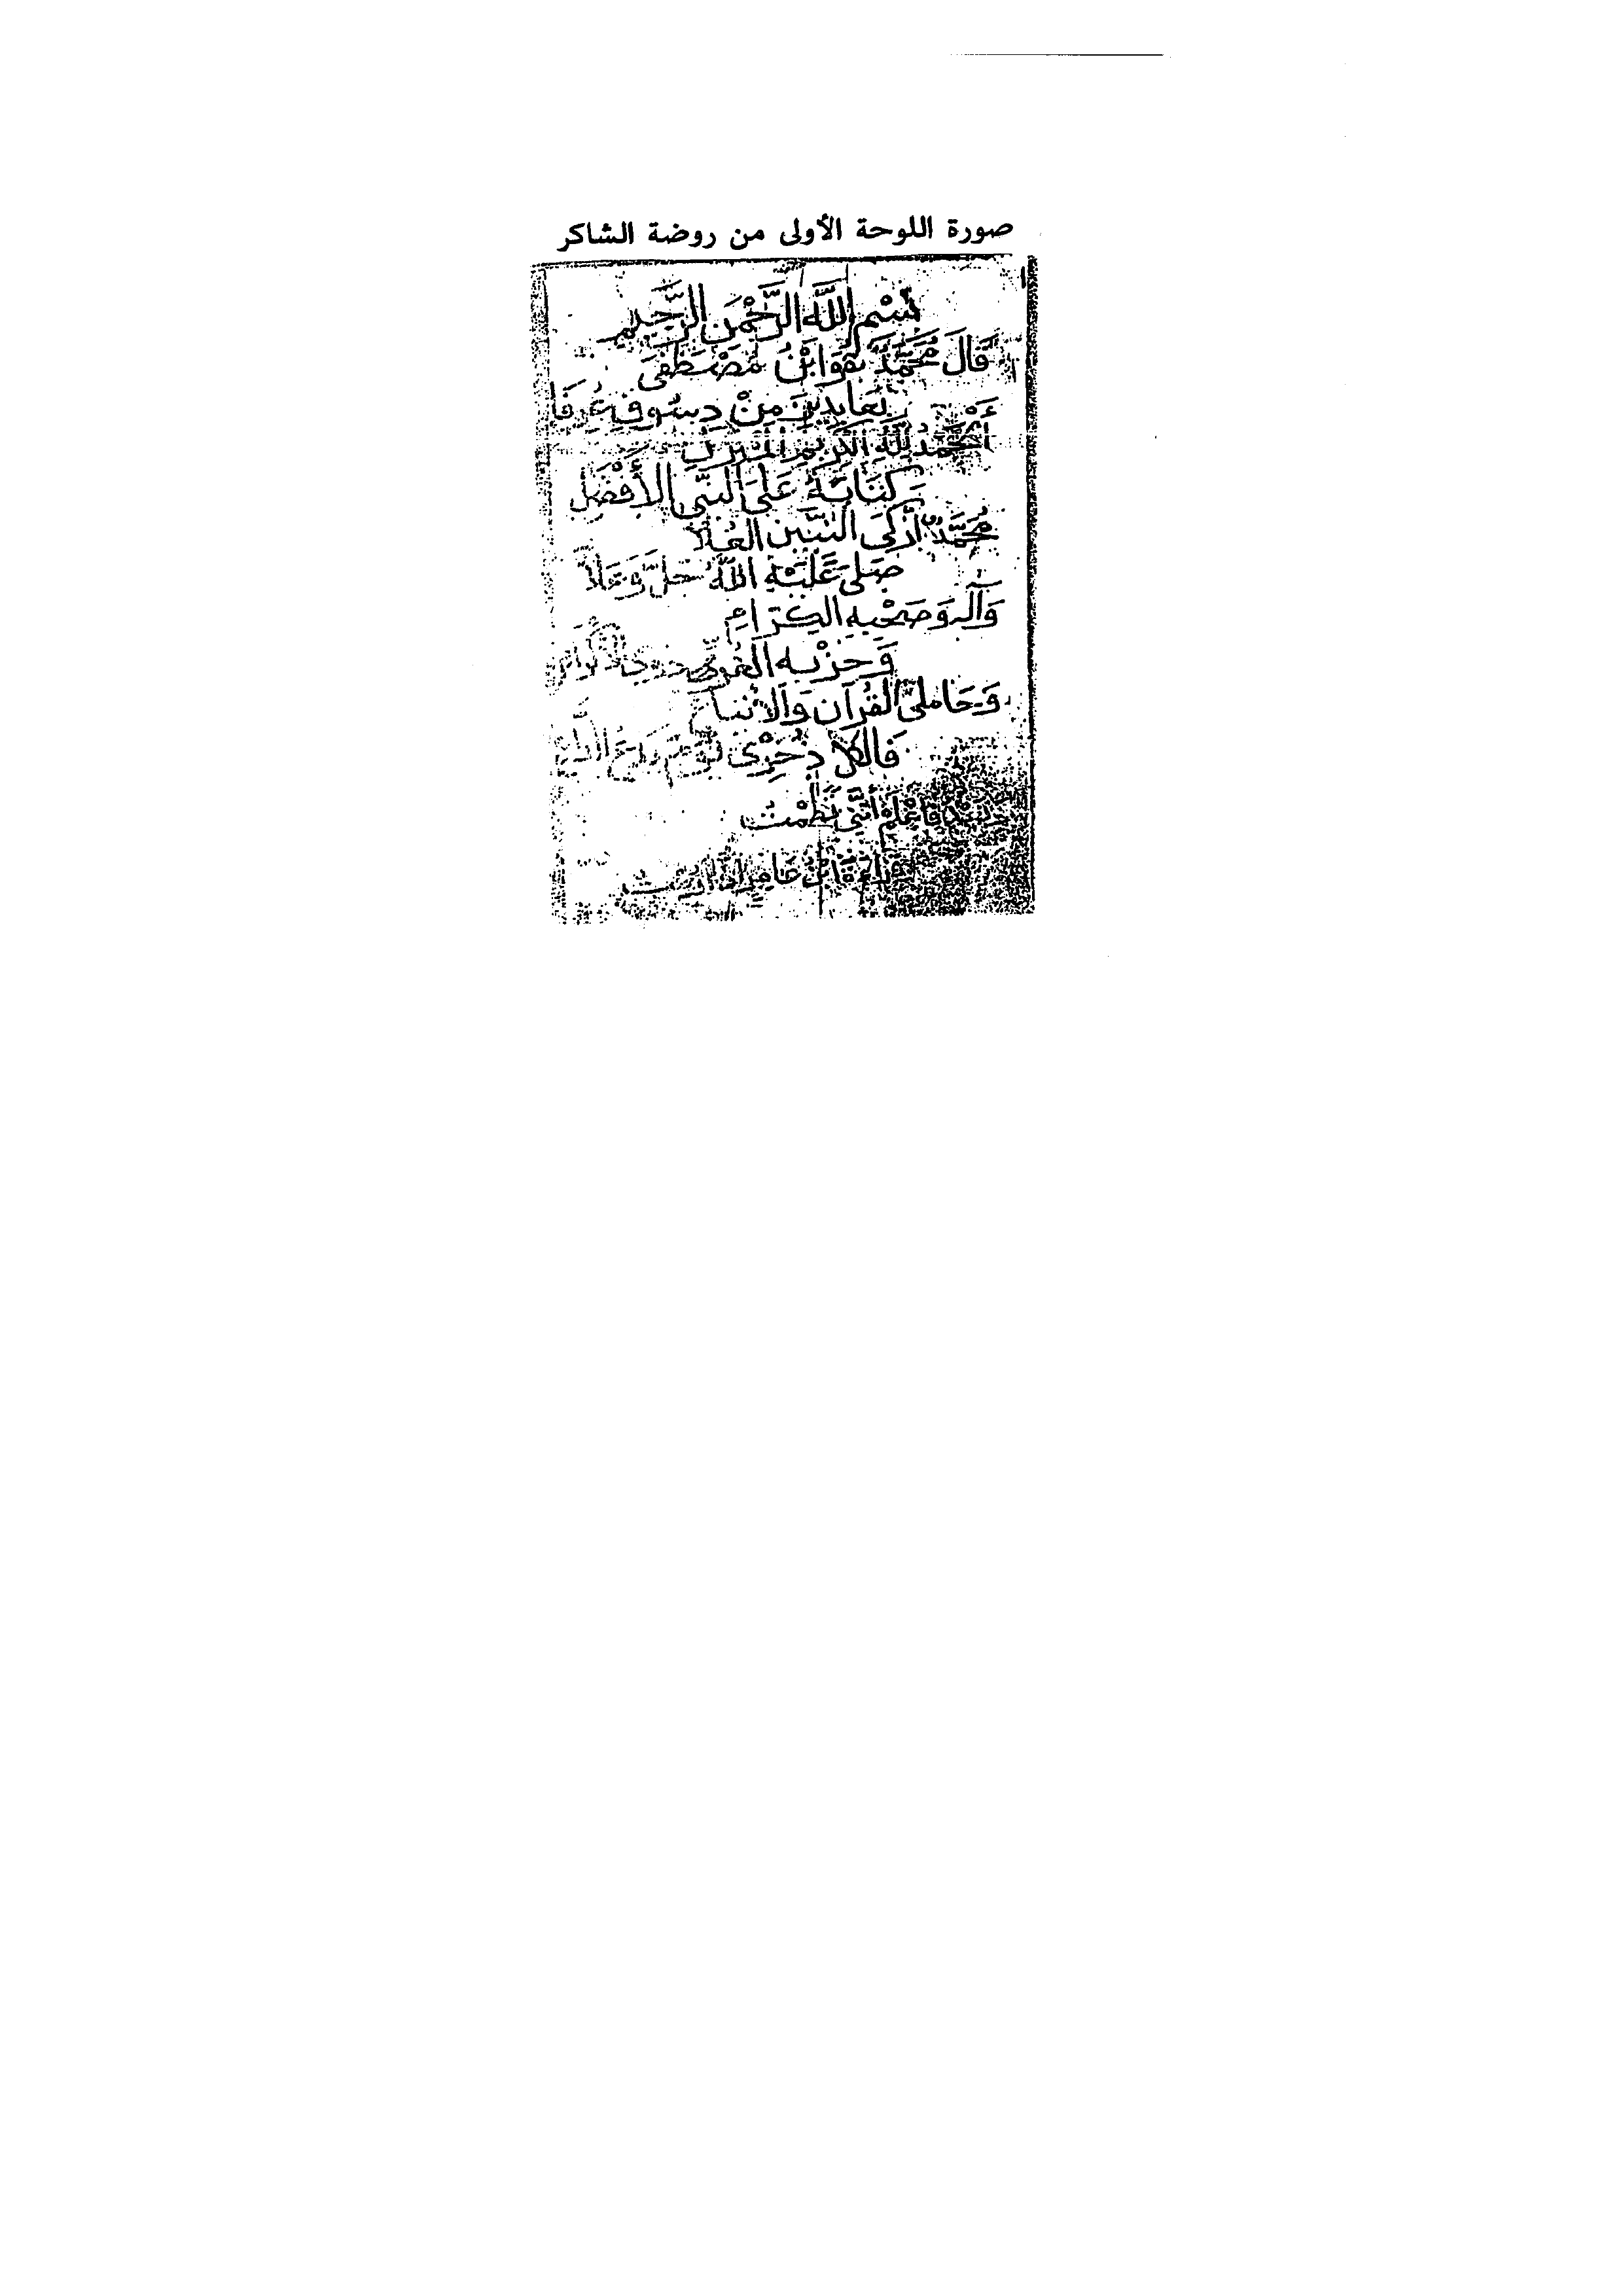 صورة اللوحة الأولى من روضة الشاكر
بِسْمِ اللَّهِ الرَّحْمَنِ الرَّحِيمِ
قَالَ مُحَمَّدٌ هُوَ ابْنُ مُصْطَفَى
بِعَابِدِينَ مِنْ دِسُوقِ عُرِفَا
أَلْحَمْدُ لِلَّهِ الْكَرِيمِ الْمُنْزِلِ
كِتَابَهُ عَلَى النَّبِي الأَفْضَلِ
مُحَمَّدٌ أَزْكَى النَّبِيِّينَ الْعُلَا
صَلَّى عَلَيْهِ اللَّهُ جَلَّ وَعَلَا
وَآلِهِ وَصَحْبِهِ الكِرَامِ
وَحِزْبِهِ
وَحَامِلِي الْقُرْآنِ وَالأَتْبَاعِ
فَالكُلُّ ذُخْرِي
وَبَعْدُ فَاعْلَمْ أَنَّنِي نَظَمْتُ
ابْنُ عَامِرٍ